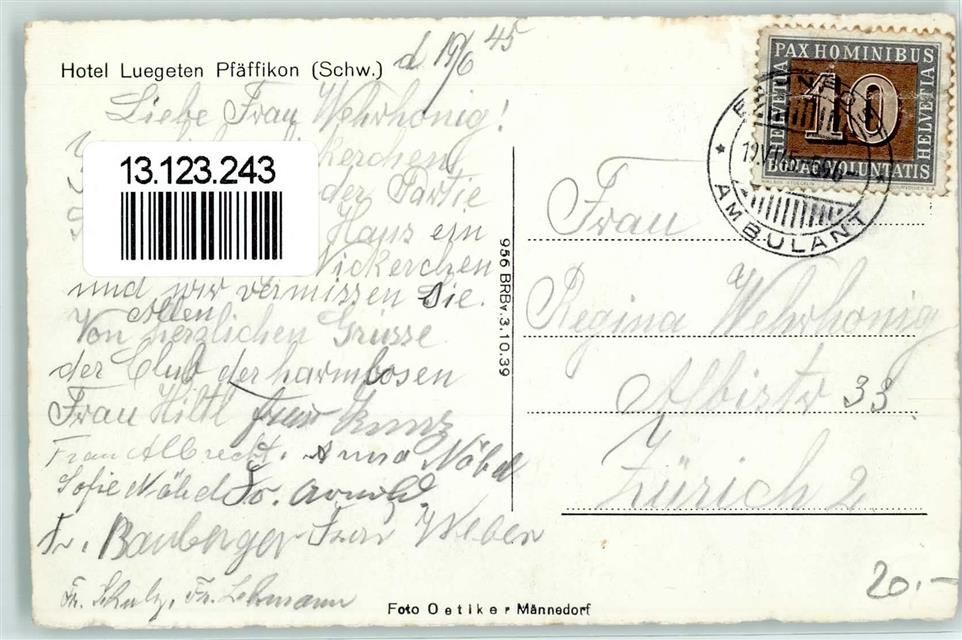 Hotel Luegeten Pfäffikon (Schw.)
d 19/6 45
Liebe Frau Wehrhonig!
der Partie
Haus ein
Nickerchen
und wir vermissen Sie.
Allen
Von herzlichen Grüsse
der Club der harmlosen
Frau Hiltl Frau Kunz
Frau Albrecht. Anna Näbd
Sofie Näbd Fr. Arnold.
Fr. Bamberger Frau Weber
Fr. Schulz, Fr. Lehmann
13.123.243
956 BRBv.3.10.39
PAX HOMINIBUS
HELVETIA
10
HELVETIA
BONAE VOLUNTATIS
AMBULANT
Frau
Regina Wehrhonig
Albistr 33
Zürich 2
20.-
Foto Oetiker Männedorf